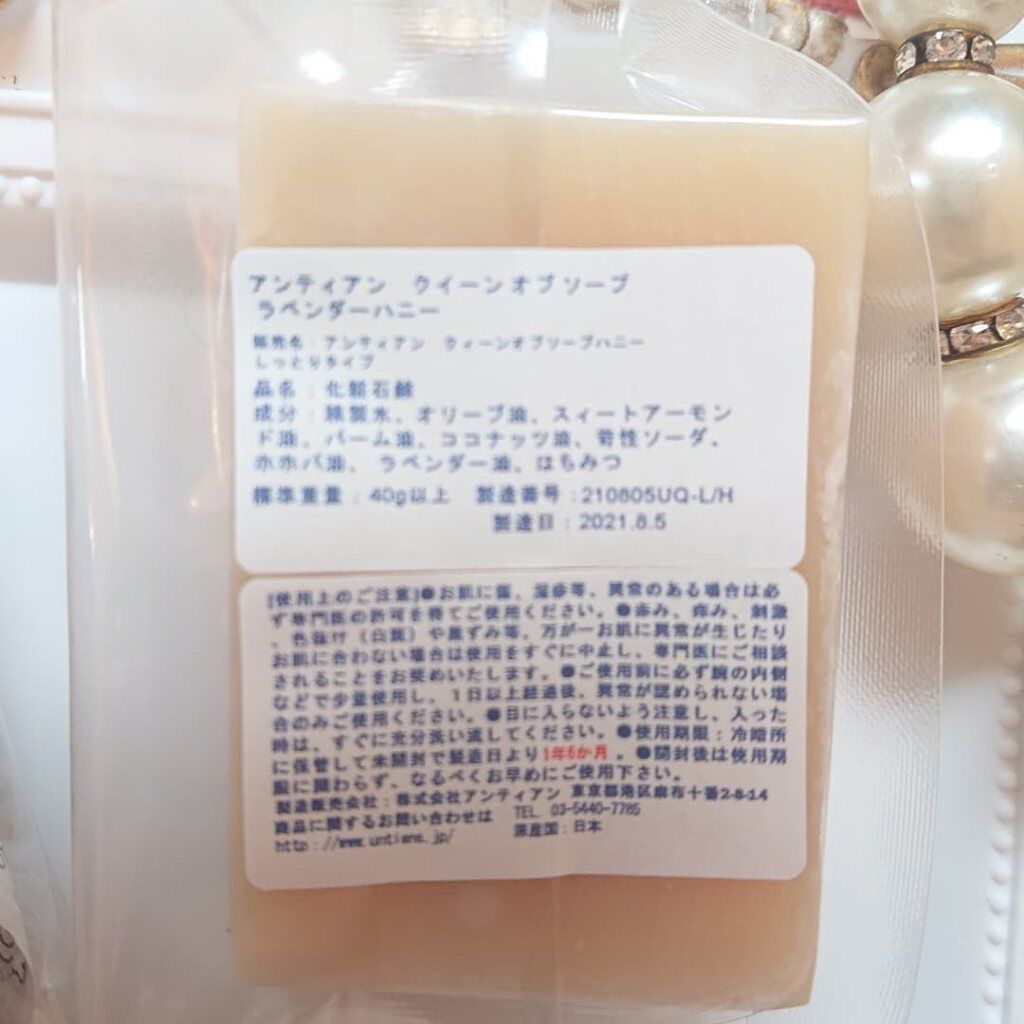 アンティアン　クイーンオブソープ
ラベンダーハニー
販売名：アンティアン　クィーンオブソープハニー
しっとりタイプ
品名：化粧石鹸
成分：精製水、オリーブ油、スィートアーモン
ド油、パーム油、ココナッツ油、苛性ソーダ、
ホホバ油、ラベンダー油、はちみつ
標準重量：40g以上　製造番号：210805UQ-L/H
製造日：2021.8.5
[使用上のご注意]●お肌に傷、湿疹等、異常のある場合は必
ず専門医の許可を得てご使用ください。●赤み、痒み、刺激
、色抜け（白斑）や黒ずみ等、万が一お肌に異常が生じたり
お肌に合わない場合は使用をすぐに中止し、専門医にご相談
されることをお奨めいたします。●ご使用前に必ず腕の内側
などで少量使用し、1日以上経過後、異常が認められない場
合のみご使用ください。●目に入らないよう注意し、入った
時は、すぐに充分洗い流してください。●使用期限：冷暗所
に保管して未開封で製造日より1年6か月。●開封後は使用期
限に関わらず、なるべくお早めにご使用下さい。
製造販売会社：株式会社アンティアン 東京都港区麻布十番2-8-14
商品に関するお問い合わせは　TEL. 03-5440-7785
http://www.untiane.jp/　原産国：日本